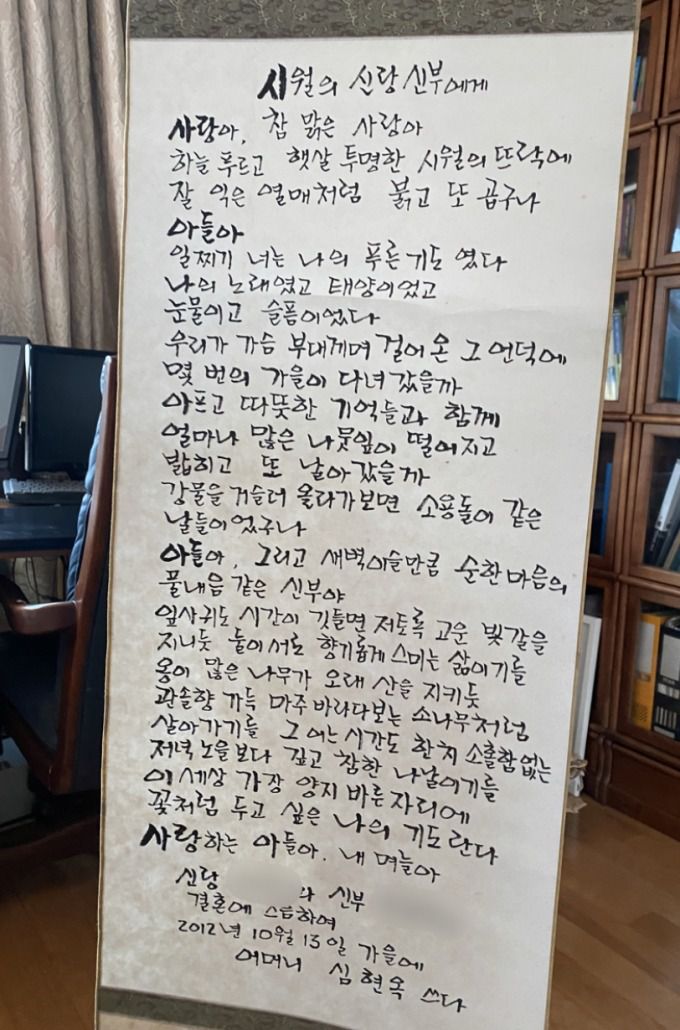 시월의 신랑 신부에게
사랑아, 참 맑은 사랑아
하늘 푸르고 햇살 투명한 시월의 뜨락에
잘 익은 열매처럼 붉고 또 곱구나
아들아
일찌기 너는 나의 푸른 기도 였다
나의 노래였고 태양이었고
눈물이고 슬픔이었다
우리가 가슴 부대끼며 걸어 온 그 언덕에
몇 번의 가을이 다녀 갔을까
아프고 따뜻한 기억들과 함께
얼마나 많은 나뭇잎이 떨어지고
밟히고 또 날아 갔을까
강물을 거슬러 올라가보면 소용돌이 같은
날들이었구나
아들아, 그리고 새벽이슬만큼 순한 마음의
풀내음 같은 신부야
잎사귀도 시간이 깃들면 저토록 고운 빛깔을
지니듯 둘이 서로 향기롭게 스미는 삶이기를
옹이 많은 나무가 오래 산을 지키듯
관솔향 가득 마주 바라다보는 소나무처럼
살아가기를 그 어느 시간도 한치 소홀함 없는
저녁 노을 보다 깊고 참한 나날이기를
이 세상 가장 양지 바른 자리에
꽃처럼 두고 싶은 나의 기도란다
사랑하는 아들아, 내 며늘아
신랑 와 신부
결혼에 즈음하여
2012년 10월 13일 가을에
어머니 심현옥 쓰다